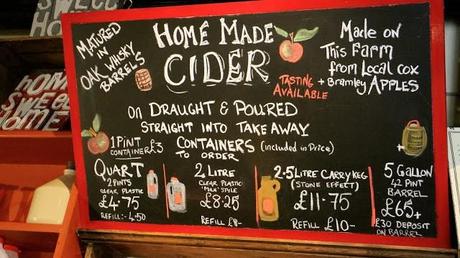 SWEET
HOME
HOME
SWEET
HOME
MATURED
IN
OAK WHISKY
BARRELS
HOME MADE
CIDER
TASTING
AVAILABLE
Made on
This Farm
from Local Cox
+ Bramley APPLES
ON DRAUGHT & POURED
STRAIGHT INTO TAKE AWAY
CONTAINERS (included in Price)
TO ORDER
1 PINT
CONTAINER £3
QUART
2 PINTS
CLEAR PLASTIC
£4-75
REFILL:- 4-50
2 LITRE
CLEAR PLASTIC
"MILK" STYLE
£8-25
REFILL £8-
2-5 LITRE CARRY KEG
(STONE EFFECT)
£11-75
REFILL £10-
5 GALLON
42 PINT
BARREL
£65
£30 DEPOSIT
ON BARREL